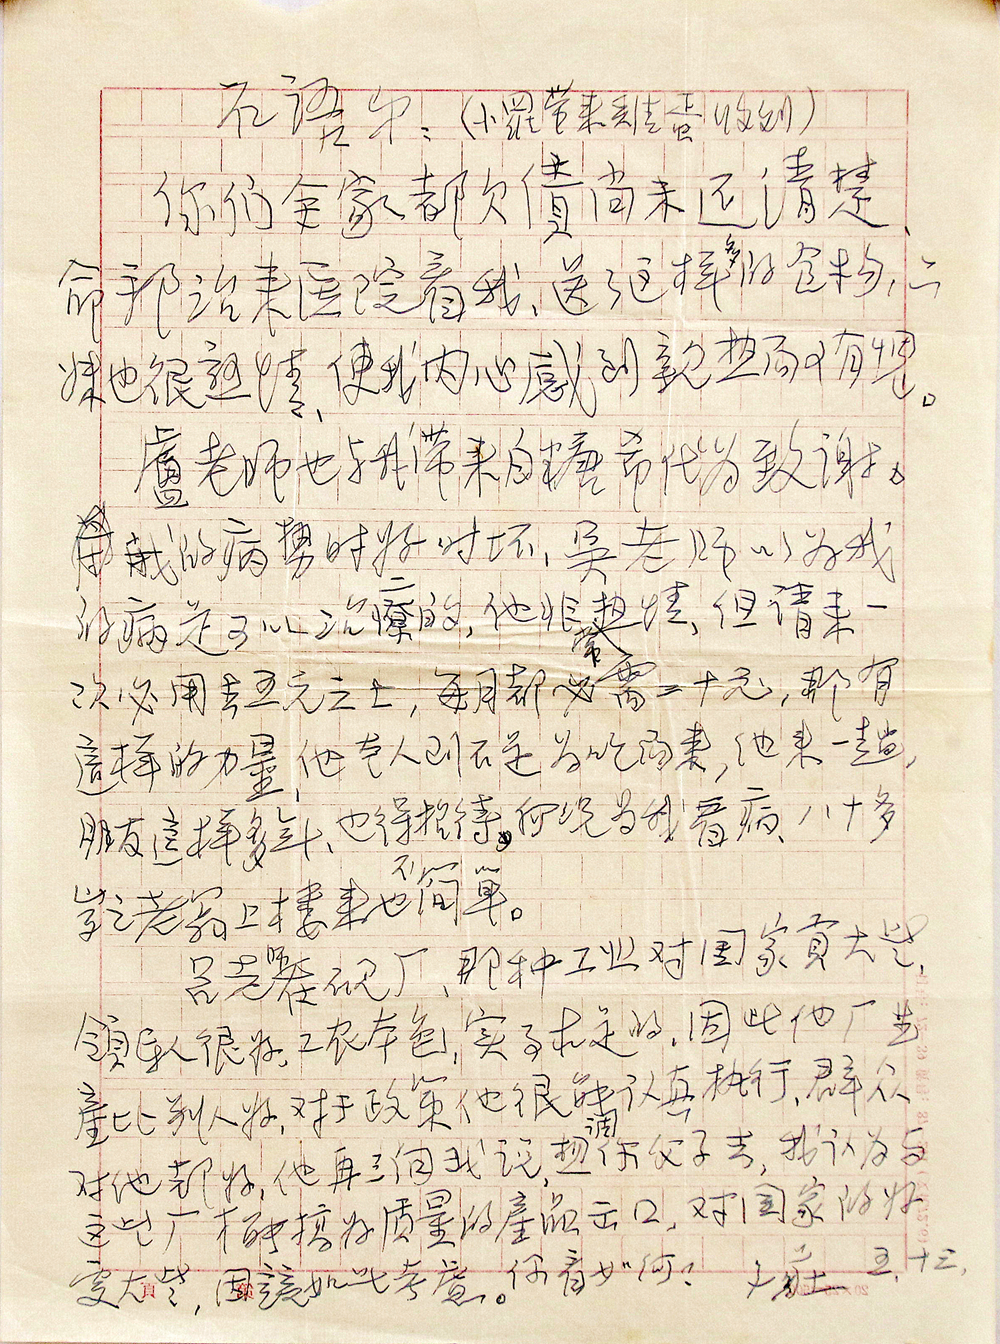 不语弟：（小羅带来雞蛋收到）
你们全家都欠债尚未还清楚、
命那治来医院看我、送了这样多的食物，二
妹也很热情、使我内心感到親热而又有愧。
盧老师也与我带来白糖希代为致谢。
我的病势时好时坏、吴老师以为我
的病是可以治療的，他非常热情，但请来一
次必用去五元之士，每月都必需二十元，那有
這样的力量，他老人则不是为吃而来，他来一趟，
朋友這样多年、也得招待。何况为我看病、八十多
岁之老翁上楼来也不简單。
吕老 在砚厂，那种工业对国家贡大些，
領导人很好，工农本色，实事求是的，因此他厂生
產比别人好，对于政策他很能认真执行、群众
对他都好，他再三和我说，想调你父子去，我认为与
这些厂才能搞好质量的產品出口，对国家的好
变大些，因該如此考慮。你看如何？
五、十三，